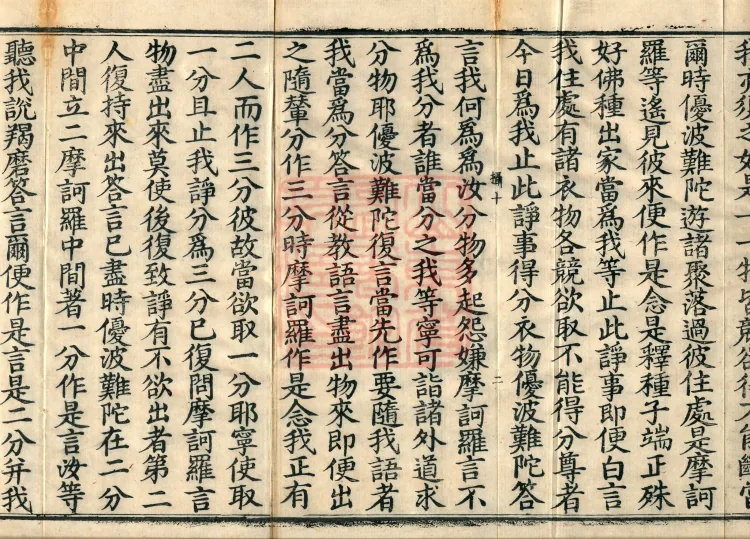 爾時優波難陀遊諸聚落過彼住處是摩訶
羅等遙見彼來便作是念是釋種子端正殊
好佛種出家當為我等止此諍事即便白言
我住處有諸衣物各競欲取不能得分尊者
今日為我止此諍事得分衣物優波難陀答
攝十
二
言我何為為汝分物多起怨嫌摩訶羅言不
為我分者誰當分之我等寧可詣諸外道求
分物耶優波難陀復言當先作要隨我語者
我當為分答言從教語言盡出物來即便出
之隨輦分作三分時摩訶羅作是念我正有
二人而作三分彼故當欲取一分耶寧使取
一分且止我諍分為三分已復問摩訶羅言
物盡出來莫使後復致諍有不欲出者第二
人復持來出答言已盡時優波難陀在二分
中間立二摩訶羅中間著一分作是言汝等
聽我說羯磨答言爾便作是言是二分并我